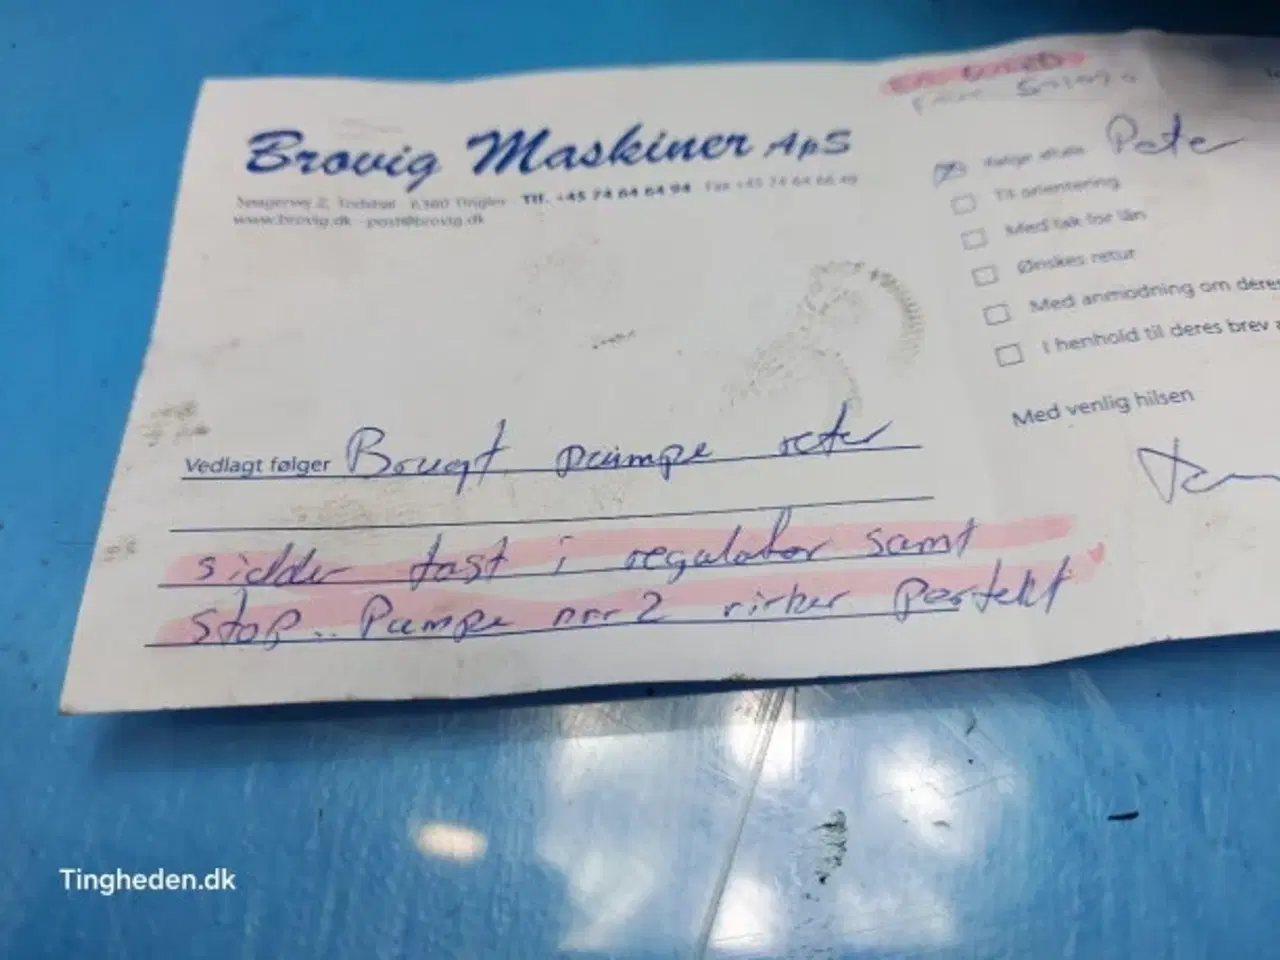 Brovig Maskiner ApS
6360 Tinglev Tlf. +45 74 64 64 94 Fax +45 74 64 66 49
www.brovig.dk - post@brovig.dk
Peter
Til orientering
Med tak for lån
Ønskes retur
Med anmodning om deres
I henhold til deres brev a
Med venlig hilsen
Vedlagt følger Brugt pumpe
sidder fast i regulator samt
stop.. Pumpe nr 2 virker perfekt
Tingheden.dk